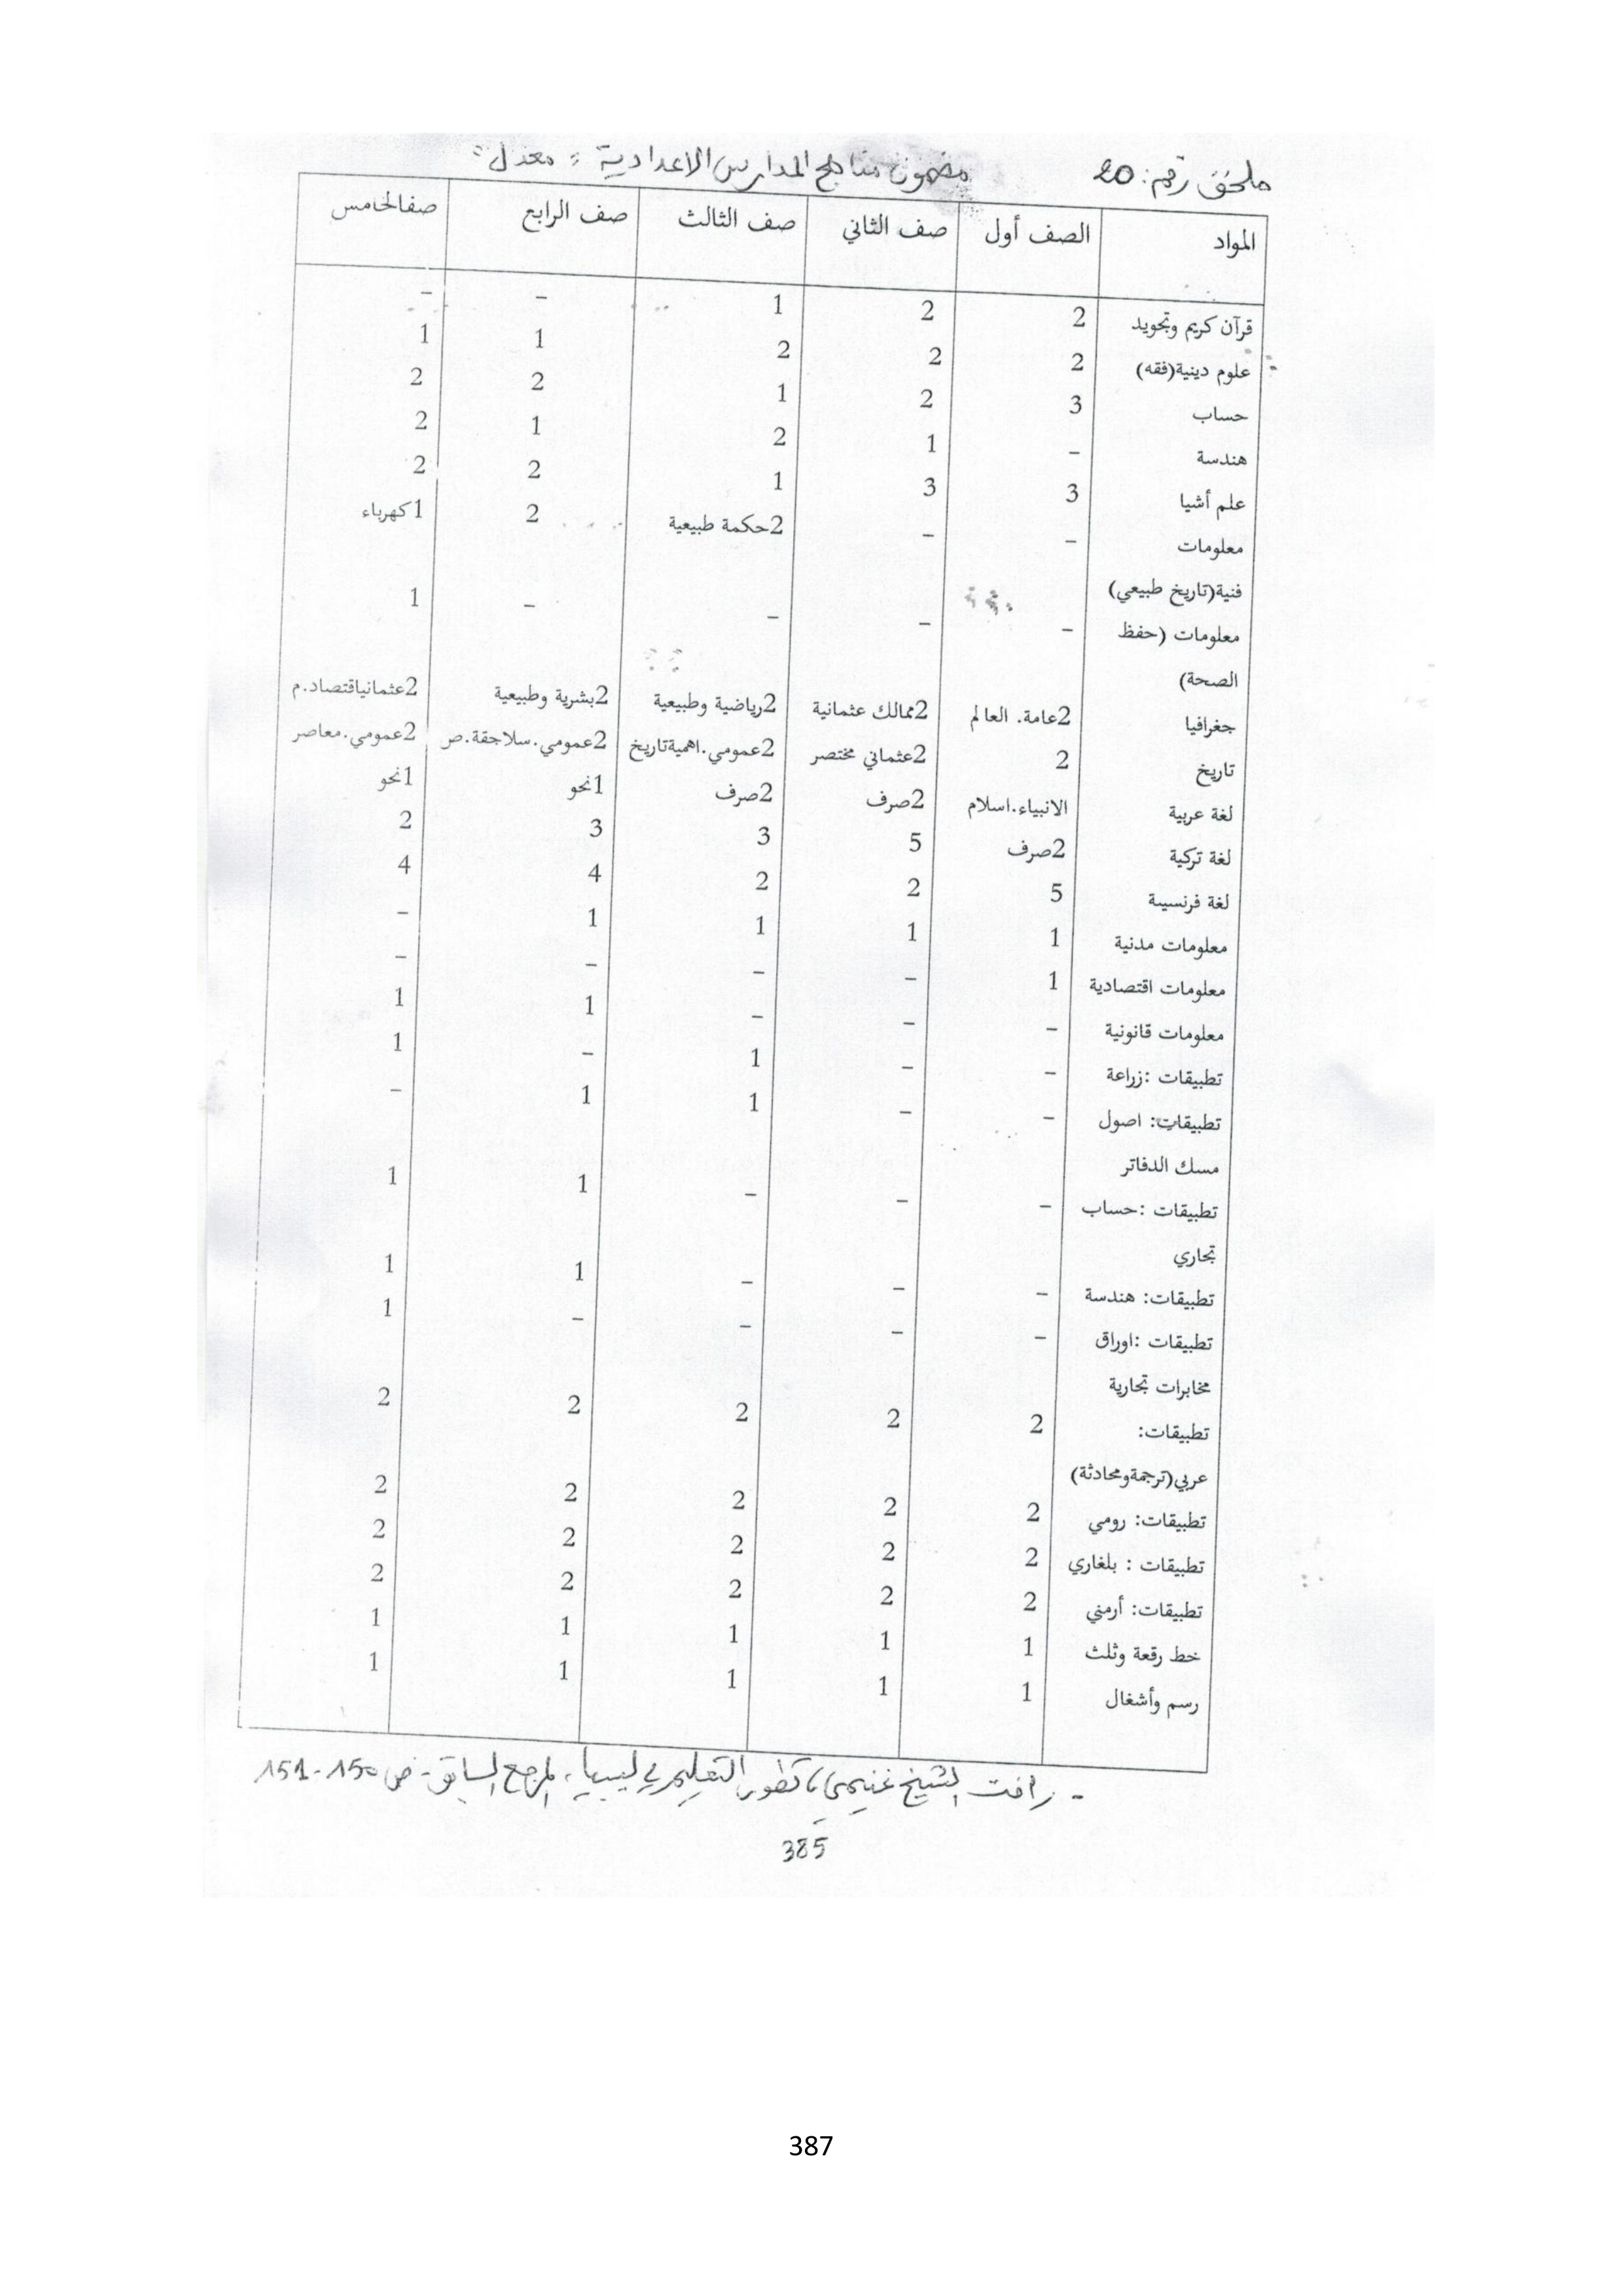 ملحق رقم: 20 مضمون مناهج المدارس الاعدادية "معدل"
المواد الصف أول صف الثاني صف الثالث صف الرابع صفالخامس
قرآن كريم وتجويد 2 2 1 – –
علوم دينية(فقه) 2 2 2 1 1
حساب 3 2 1 2 2
هندسة – 1 2 1 2
علم أشيا 3 3 1 2 2
معلومات – – 2حكمة طبيعية 2 1كهرباء
فنية(تاريخ طبيعي)
معلومات (حفظ – – – – 1
الصحة)
جغرافيا 2عامة. العالم 2ممالك عثمانية 2رياضية وطبيعية 2بشرية وطبيعية 2عثمانياقتصاد.م
تاريخ 2 2عثماني مختصر 2عمومي.اهميةتاريخ 2عمومي.سلاجقة.ص 2عمومي.معاصر
لغة عربية الانبياء.اسلام 2صرف 2صرف 1نحو 1نحو
لغة تركية 2صرف 5 3 3 2
لغة فرنسية 5 2 2 4 4
معلومات مدنية 1 1 1 1 –
معلومات اقتصادية 1 – – – –
معلومات قانونية – – – 1 1
تطبيقات :زراعة – – 1 – 1
تطبيقات: اصول – – 1 1 –
مسك الدفاتر
تطبيقات :حساب – – – 1 1
تجاري
تطبيقات: هندسة – – – 1 1
تطبيقات :اوراق – – – – 1
مخابرات تجارية
تطبيقات: 2 2 2 2 2
عربي(ترجمةومحادثة)
تطبيقات: رومي 2 2 2 2 2
تطبيقات : بلغاري 2 2 2 2 2
تطبيقات: أرمني 2 2 2 2 2
خط رقعة وثلث 1 1 1 1 1
رسم وأشغال 1 1 1 1 1
- رافت الشيخ غنيمي، تطور التعليم في ليبيا، المرجع السابق- ص 150-151
385
387